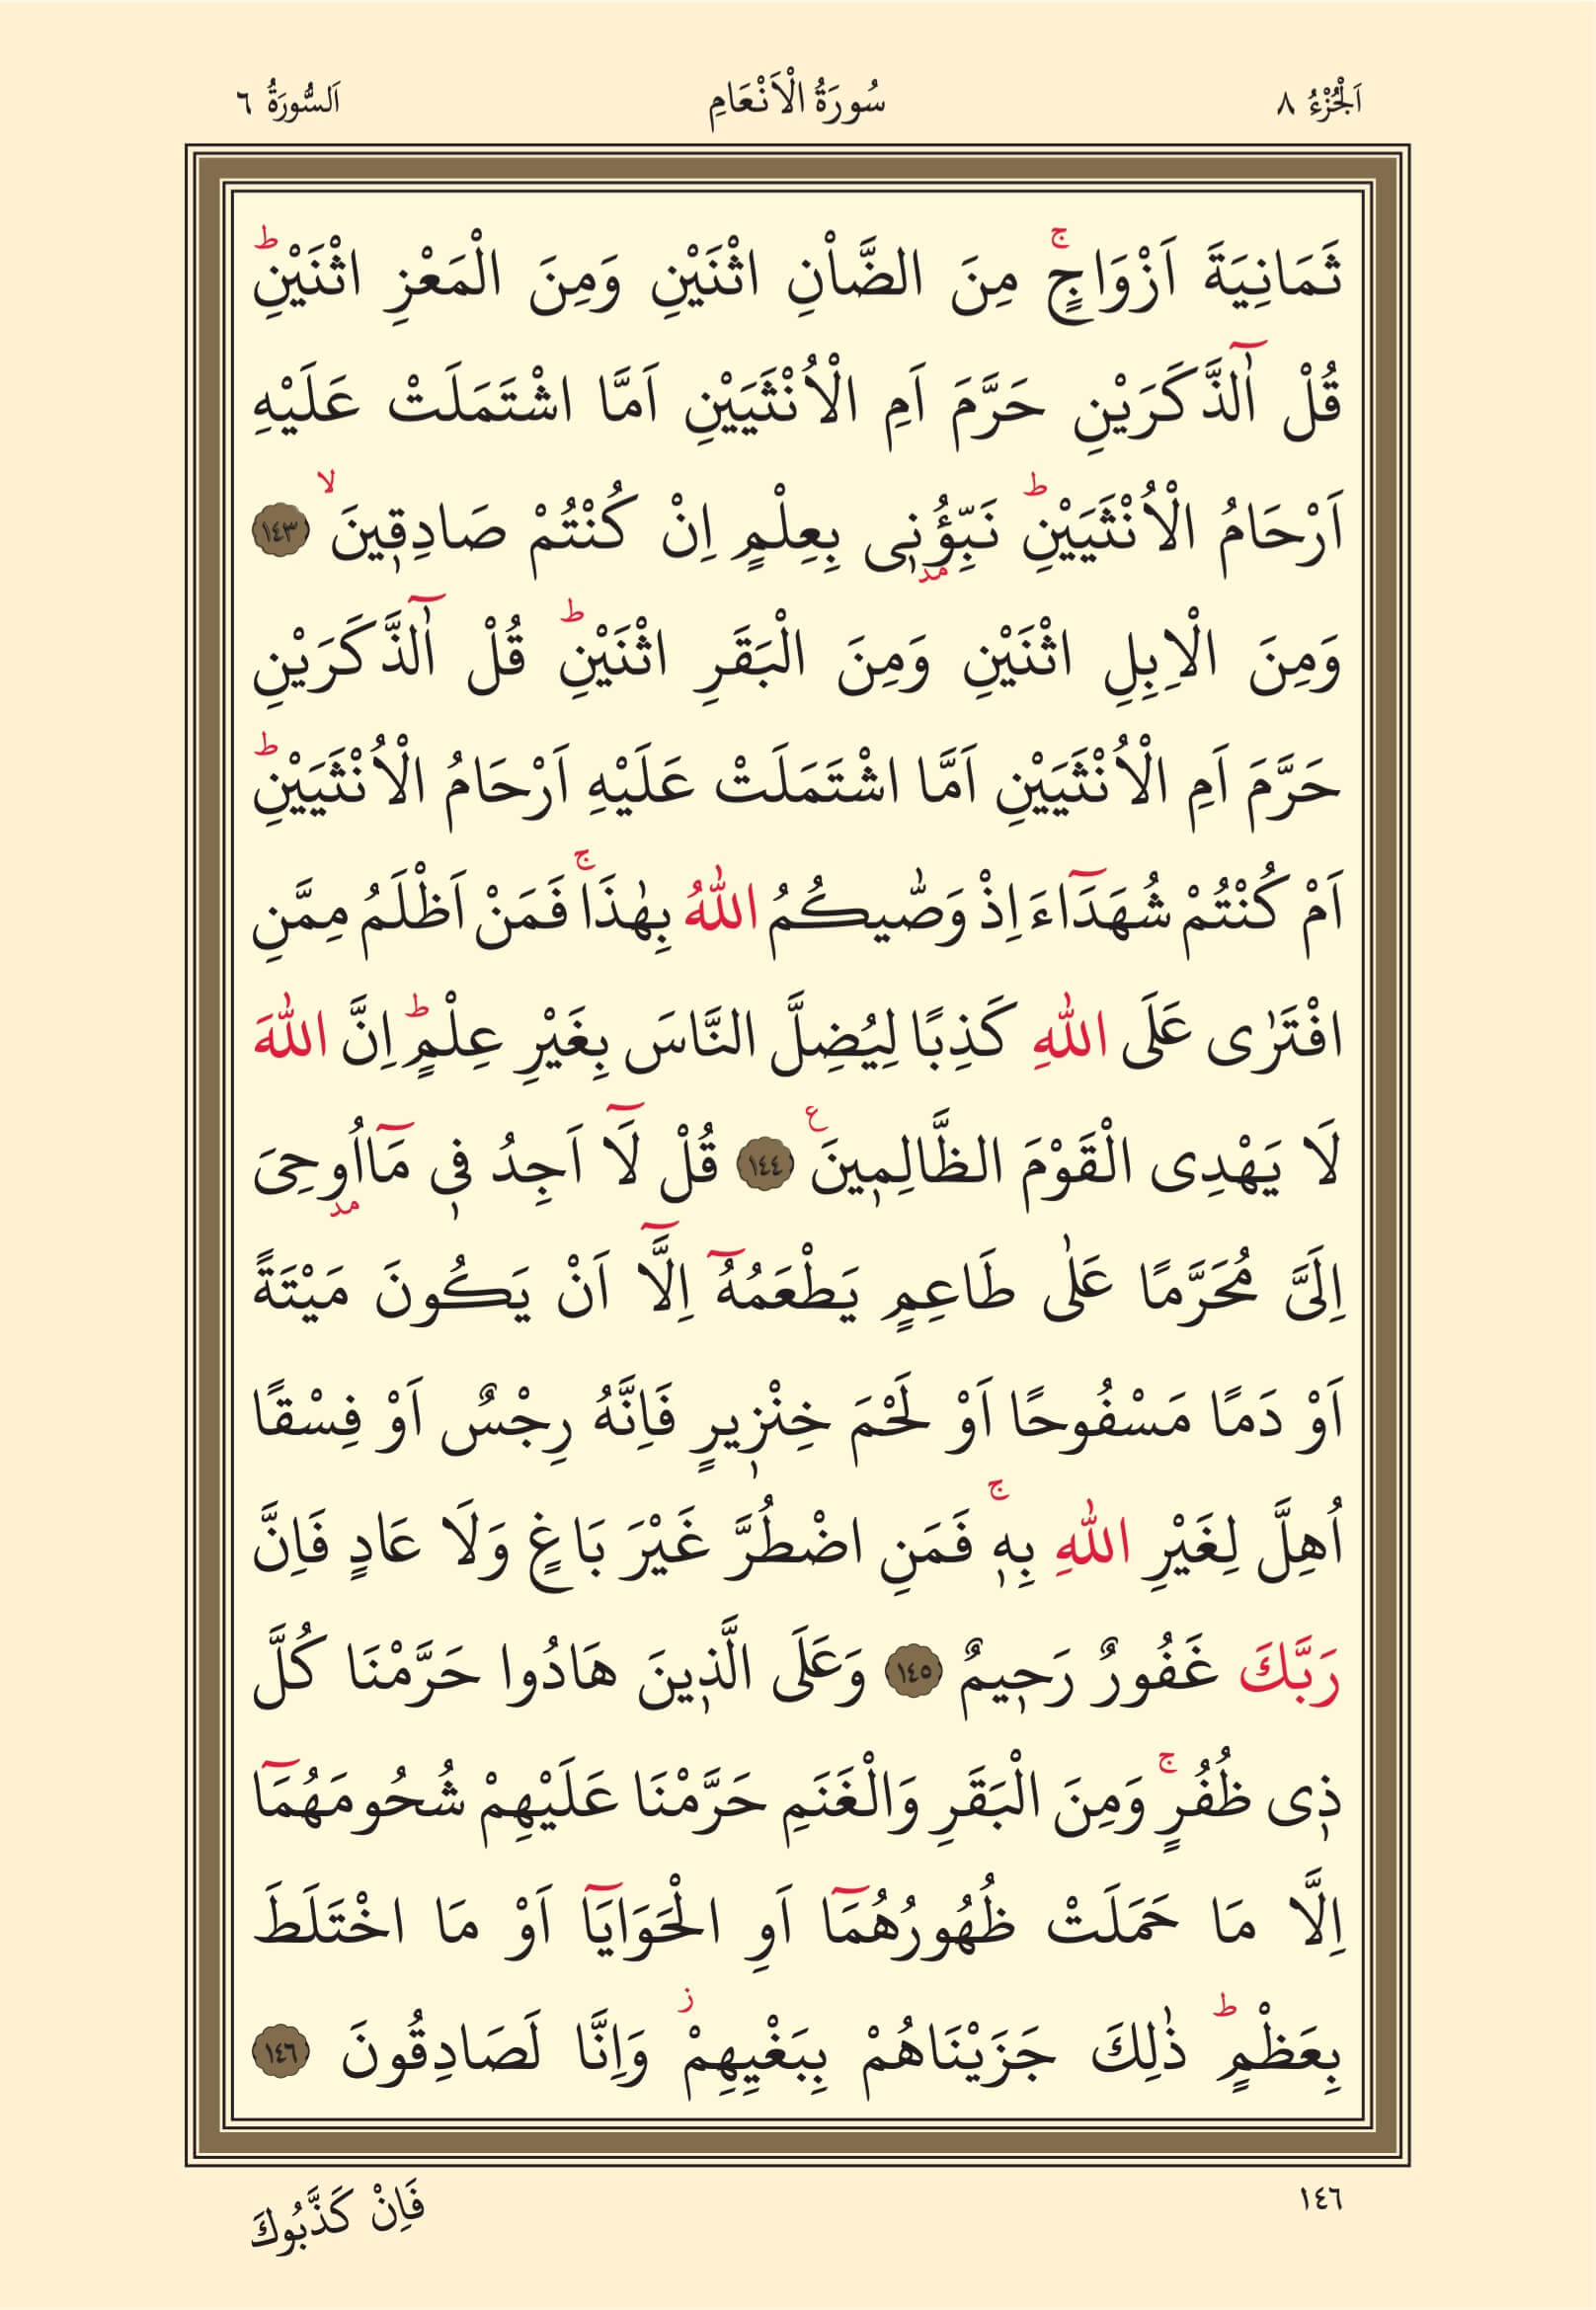 اَلْجُزْءُ ٨ سُورَةُ الْاَنْعَامِ اَلسُّورَةُ ٦
ثَمَانِيَةَ اَزْوَاجٍۚ مِنَ الضَّأْنِ اثْنَيْنِ وَمِنَ الْمَعْزِ اثْنَيْنِۜ
قُلْ آٰلذَّكَرَيْنِ حَرَّمَ اَمِ الْاُنْثَيَيْنِ اَمَّا اشْتَمَلَتْ عَلَيْهِ
اَرْحَامُ الْاُنْثَيَيْنِۜ نَبِّؤُ۫ن۪ى بِعِلْمٍ اِنْ كُنْتُمْ صَادِق۪ينَۙ ١٤٣
وَمِنَ الْاِبِلِ اثْنَيْنِ وَمِنَ الْبَقَرِ اثْنَيْنِۜ قُلْ آٰلذَّكَرَيْنِ
حَرَّمَ اَمِ الْاُنْثَيَيْنِ اَمَّا اشْتَمَلَتْ عَلَيْهِ اَرْحَامُ الْاُنْثَيَيْنِۜ
اَمْ كُنْتُمْ شُهَدَٓاءَ اِذْ وَصّٰيكُمُ اللّٰهُ بِهٰذَاۚ فَمَنْ اَظْلَمُ مِمَّنِ
افْتَرٰى عَلَى اللّٰهِ كَذِبًا لِيُضِلَّ النَّاسَ بِغَيْرِ عِلْمٍۜ اِنَّ اللّٰهَ
لَا يَهْدِى الْقَوْمَ الظَّالِم۪ينَ۟ ١٤٤ قُلْ لَٓا اَجِدُ ف۪ى مَٓا اُو۫حِىَ
اِلَىَّ مُحَرَّمًا عَلٰى طَاعِمٍ يَطْعَمُهُٓ اِلَّٓا اَنْ يَكُونَ مَيْتَةً
اَوْ دَمًا مَسْفُوحًا اَوْ لَحْمَ خِنْز۪يرٍ فَاِنَّهُ رِجْسٌ اَوْ فِسْقًا
اُهِلَّ لِغَيْرِ اللّٰهِ بِه۪ۚ فَمَنِ اضْطُرَّ غَيْرَ بَاغٍ وَلَا عَادٍ فَاِنَّ
رَبَّكَ غَفُورٌ رَح۪يمٌ ١٤٥ وَعَلَى الَّذ۪ينَ هَادُوا حَرَّمْنَا كُلَّ
ذ۪ى ظُفُرٍۚ وَمِنَ الْبَقَرِ وَالْغَنَمِ حَرَّمْنَا عَلَيْهِمْ شُحُومَهُمَٓا
اِلَّا مَا حَمَلَتْ ظُهُورُهُمَٓا اَوِ الْحَوَايَٓا اَوْ مَا اخْتَلَطَ
بِعَظْمٍۜ ذٰلِكَ جَزَيْنَاهُمْ بِبَغْيِهِمْۘ وَاِنَّا لَصَادِقُونَ ١٤٦
١٤٦
فَاِنْ كَذَّبُوكَ